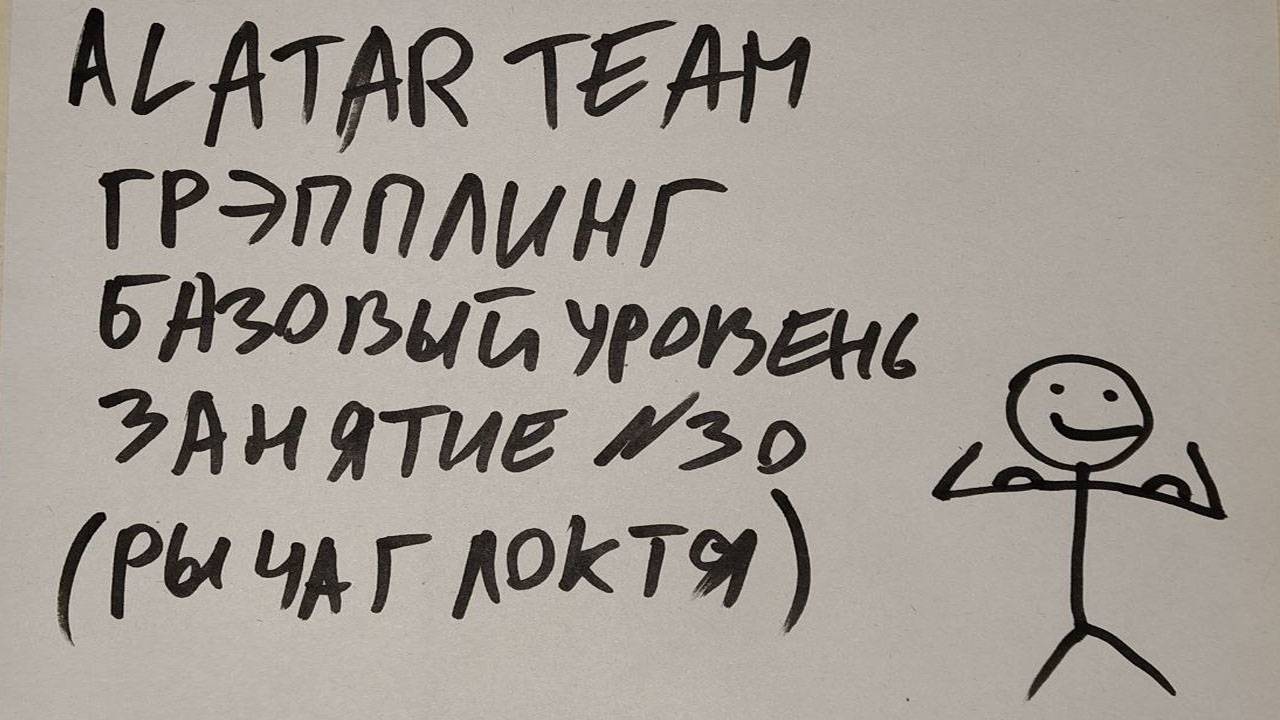 ALATAR TEAM
ГРЭППЛИНГ
БАЗОВЫЙ УРОВЕНЬ
ЗАНЯТИЕ N30
(РЫЧАГ ЛОКТЯ)